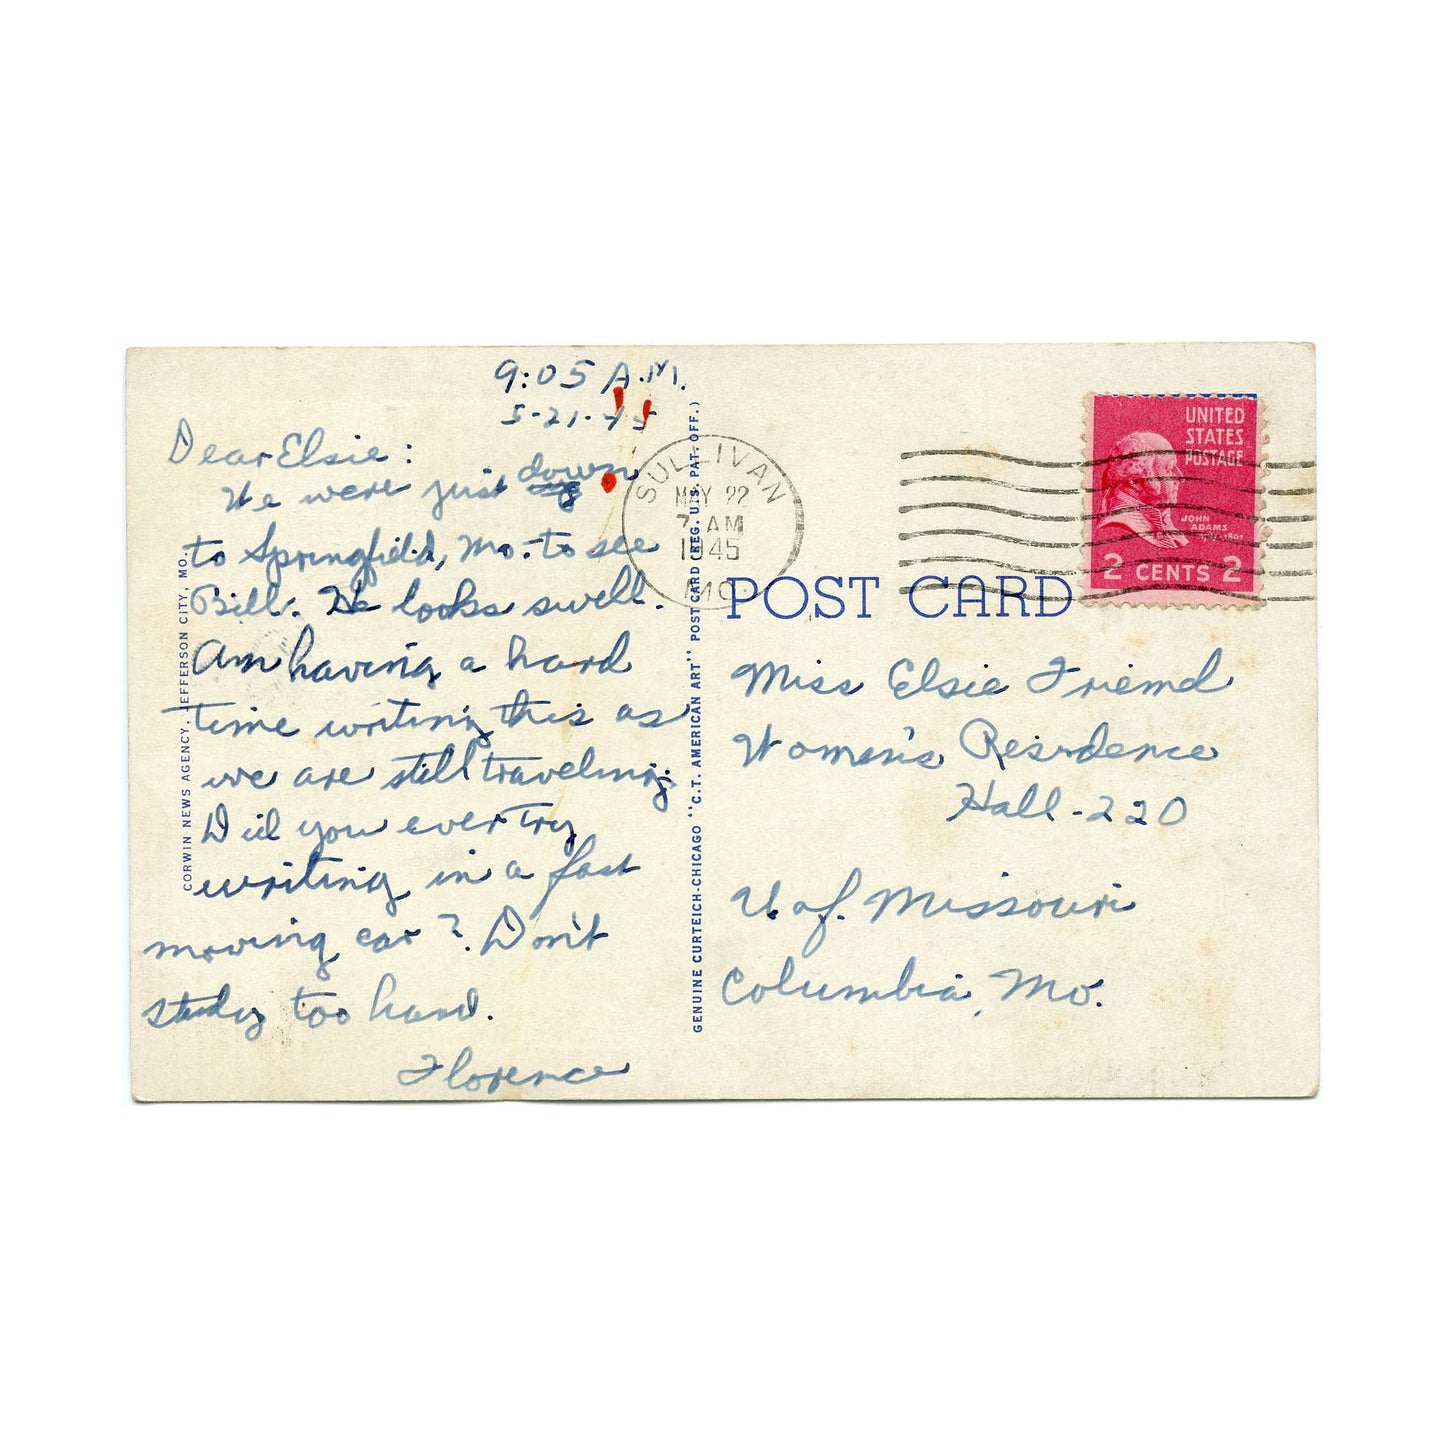 9:05 A.M.
5-21-45
Dear Elsie:
We were just down
to Springfield, Mo. to see
Bill. He looks swell.
Am having a hard
time writing this as
we are still traveling.
Did you ever try
writing in a fast
moving car? Don't
study too hard.
Florence
CORWIN NEWS AGENCY, JEFFERSON CITY, MO.
GENUINE CURTEICH-CHICAGO "C.T. AMERICAN ART" POST CARD (REG. U.S. PAT. OFF.)
SULLIVAN
MAY 22
7 AM
1945
MO.
UNITED
STATES
POSTAGE
JOHN
ADAMS
1797-1801
2 CENTS 2
POST CARD
Miss Elsie Friend
Women's Residence
Hall-220
U. of. Missouri
Columbia, Mo.